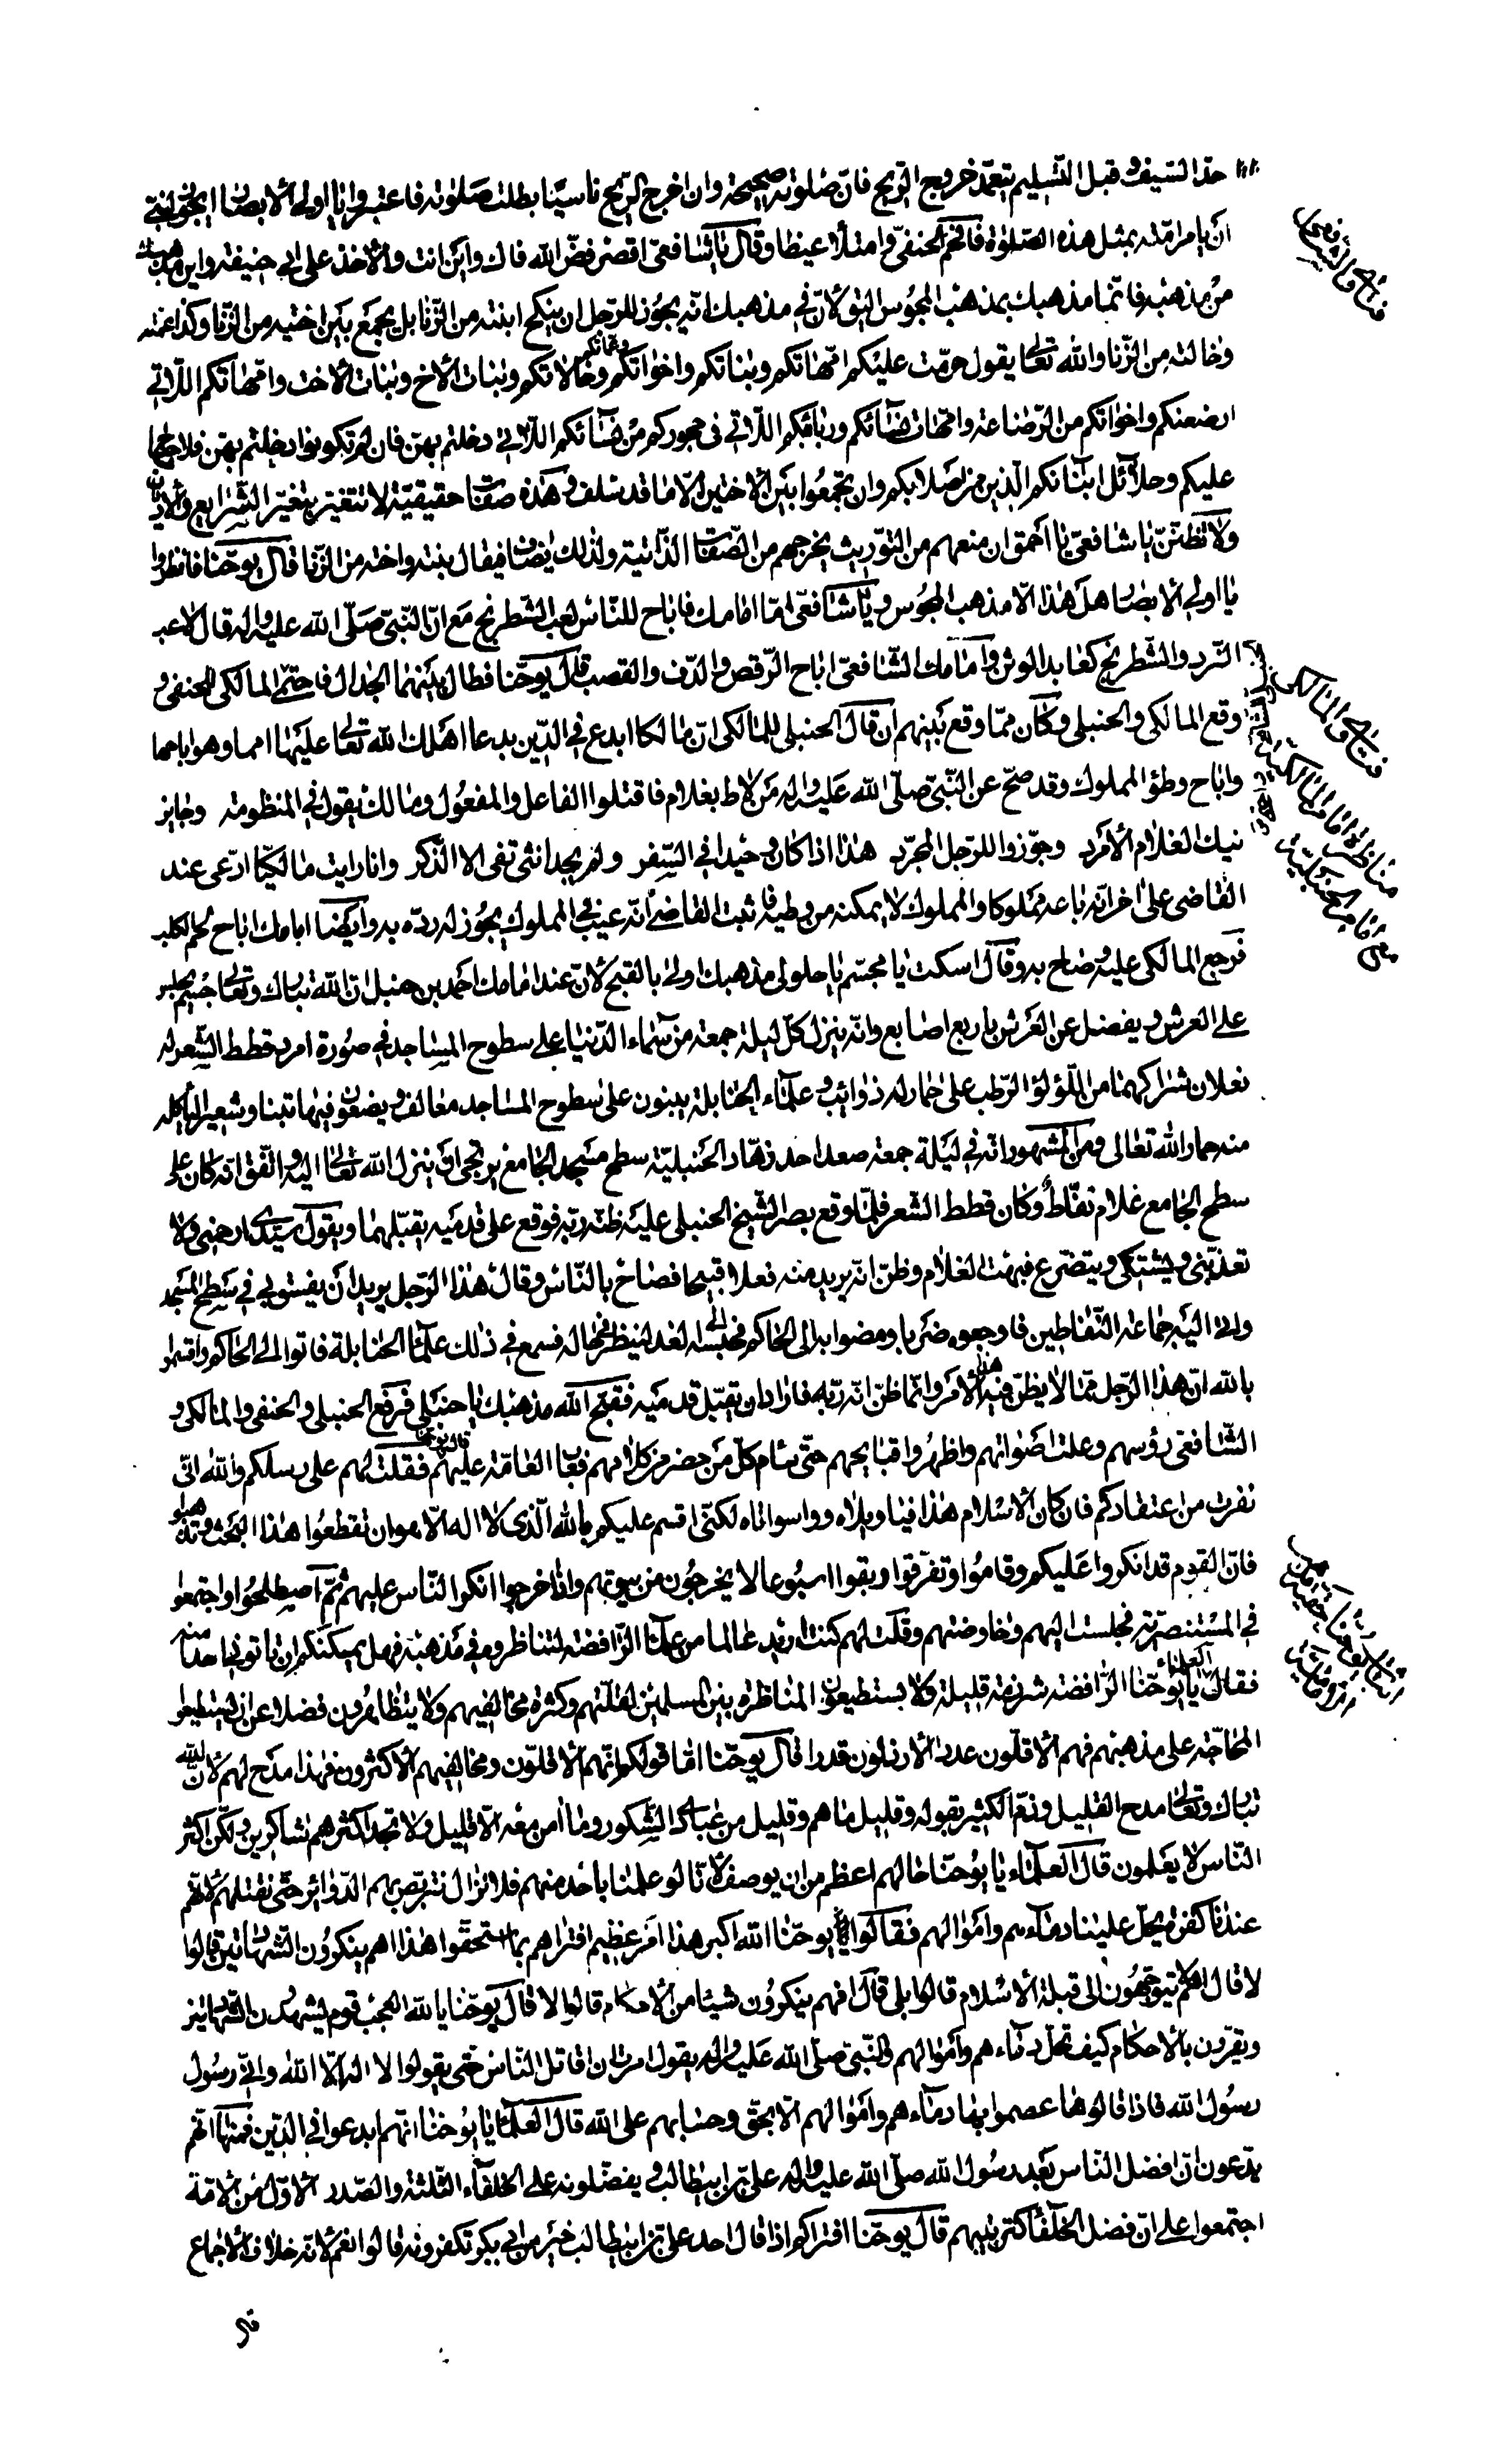 حذ السيف وقبل التسليم تعمد خروج الريح فان صلوته صحيحة وان اخرج الريح ناسيا بطلت صلوته فاعتبروا يا اولى الابصار ايجوز لنبى
ان يامر امته بمثل هذه الصلوة فافحم الحنفى وامتلأ غيظا وقال يا شافعى اقصر فض الله فاك واين انت والاخذ على ابى حنيفة واين مذهبك
من مذهبه فانما مذهبك بمذهب المجوس اليق لان فى مذهبك انه يجوز للرجل ان ينكح ابنته من الزنا بل يجمع بين اختيه من الزنا وكذا عمته
وخالته من الزنا والله تعالى يقول حرمت عليكم امهاتكم وبناتكم واخواتكم وعماتكم وخالاتكم وبنات الاخ وبنات الاخت وامهاتكم اللاتى
ارضعنكم واخواتكم من الرضاعة وامهات نسائكم وربائبكم اللاتى فى حجوركم من نسائكم اللاتى دخلتم بهن فان لم تكونوا دخلتم بهن فلا جناح
عليكم وحلائل ابنائكم الذين من اصلابكم وان تجمعوا بين الاختين الا ما قد سلف وهذه صفات حقيقية لا تتغير بتغير الشرايع والاديان
ولا تظنن يا شافعى يا احمق ان منعهم من التوريث يخرجهم من الصفات الذاتية ولذلك يضاف فيقال بنته واخته من الزنا قال يوحنا فانظروا
يا اولى الابصار هل هذا الا مذهب المجوس ويا شافعى اما امامك فاباح للناس لعب الشطرنج مع ان النبى صلى الله عليه واله قال لاعب
النرد والشطرنج كعابد الوثن وامامك الشافعى اباح الرقص والدف والقصب قال يوحنا فطال بينهما الجدال فاحتم المالكى للحنفى و
وقع المالكى والحنبلى وكان مما وقع بينهم ان قال الحنبلى للمالكى ان مالكا ابدع فى الدين بدعا اهلك الله تعالى عليها امما وهو اباحها
واباح وطؤ المملوك وقد صح عن النبى صلى الله عليه واله من لاط بغلام فاقتلوا الفاعل والمفعول ومالك يقول فى المنظومة وجايز
نيك الغلام الامرد وجوزوا للرجل المجرد هذا اذا كان وحيدا فى السفر ولم يجد انثى تفى الا الذكر وانا رايت مالكيا ادعى عند
القاضى على اخر انه باعه مملوكا والمملوك لا يمكنه من وطيه فاثبت القاضى انه عيب فى المملوك يجوز له رده به وايضا امامك اباح لحم الكلب
فرجع المالكى عليه وصاح به وقال اسكت يا مجسم يا حلولى مذهبك اولى بالقبح لان عند امامك احمد بن حنبل ان الله تبارك وتعالى جسم يجلس
على العرش ويفضل عن العرش باربع اصابع وانه ينزل كل ليلة جمعة من سماء الدنيا على سطوح المساجد فى صورة امرد قطط الشعر له
نعلان شراكهما من اللؤلؤ الرطب على حمار له ذوائب وعلماء الحنابلة يبنون على سطوح المساجد معالف ويضعون فيها تبنا وشعيرا لياكله
منه حمار الله تعالى ومن المشهور انه فى ليلة جمعة صعد احد زهاد الحنبلية سطح مسجد الجامع يرتجى ان ينزل الله تعالى اليه واتفق انه كان على
سطح الجامع غلام نفاط وكان قطط الشعر فلما وقع بصر الشيخ الحنبلى عليه ظنه ربه فوقع على قدميه يقبلهما ويقول سيدى ارحمنى ولا
تعذبنى ويشتكى ويتضرع فبهت الغلام وظن انه يريد منه فعلا قبيحا فصاح بالناس وقال هذا الرجل يريد ان يفسق بى فى سطح المسجد
واتى اليه جماعة النفاطين فاوجعوه ضربا ومضوا به الى الحاكم فحبسه الى الغد لينظر فى حاله فسمع فى ذلك علماء الحنابلة فاتوا الى الحاكم واقسموا
بالله ان هذا الرجل مما لا يظن فيه هذا الامر وانما ظن انه ربه فاراد ان يقبل قدميه فقبح الله مذهبك يا حنبلى فرفع الحنبلى والحنفى والمالكى و
الشافعى رؤسهم وعلت اصواتهم واظهروا قبايحهم حتى سام كل من حضر من كلامهم فعاب العامة عليهم قال يوحنا فقلت لهم على رسلكم والله انى
نفرت من اعتقادكم فان كان الاسلام هذا فيا ويلاه وواسواتاه لكنى اقسم عليكم بالله الذى لا اله الا هو ان تقطعوا هذا البحث وتذهبوا
فان القوم قد انكروا عليكم وقاموا وتفرقوا وبقوا اسبوعا لا يخرجون من بيوتهم واذا خرجوا انكروا الناس عليهم ثم اصطلحوا واجتمعوا
فى المستنصرية فجلست اليهم وخاوضتهم وقلت لهم كنت اريد عالما من علماء الرافضة لتناظروه فى مذهبه فهل يمكنكم ان تاتونى احدا منهم
فقال العلماء يا يوحنا الرافضة شرذمة قليلة ولا يستطيعون المناظرة بين المسلمين لقلتهم وكثرة مخالفيهم ولا يتظاهرون فضلا عن ان يستطيعوا
المحاجة على مذهبهم فهم الاقلون عددا الارذلون قدرا قال يوحنا اما قولكم انهم الاقلون ومخالفيهم الاكثرون فهذا مدح لهم لان الله
تبارك وتعالى مدح القليل وذم الكثير بقوله وقليل ما هم وقليل من عبادى الشكور وما امن معه الا قليل ولا تجد اكثرهم شاكرين ولكن اكثر
الناس لا يعلمون قال العلماء يا يوحنا حالهم اعظم من ان يوصف لانا لو علمنا باحد منهم فلا نزال نتربص بهم الدوائر حتى نقتلهم لانهم
عندنا كفرة يحل علينا دماءهم واموالهم فقال يوحنا الله اكبر هذا امر عظيم افتراهم بما استحقوا هذا اهم ينكرون الشهادتين قالوا
لا قال افهم يتوجهون الى قبلة الاسلام قالوا بلى قال افهم ينكرون شيئا من الاحكام قالوا لا قال يوحنا يا لله العجب قوم يشهدون الشهادتين
ويقرون بالاحكام كيف تحل دماءهم واموالهم والنبى صلى الله عليه واله يقول امرت ان اقاتل الناس حتى يقولوا لا اله الا الله وانى رسول
رسول الله فاذا قالوها عصموا بها دماءهم واموالهم الا بحق وحسابهم على الله قال العلماء يا يوحنا انهم ابدعوا فى الدين فمنها انهم
يدعون ان افضل الناس بعد رسول الله صلى الله عليه واله على بن ابيطالب ويفضلونه على الخلفاء الثلثة والصدر الاول من الامة
اجتمعوا على ان فضل الخلفاء كترتيبهم قال يوحنا افتراكم اذا قال احد على بن ابيطالب خير من ابى بكر تكفرونه قالوا نعم لانه خلاف الاجماع